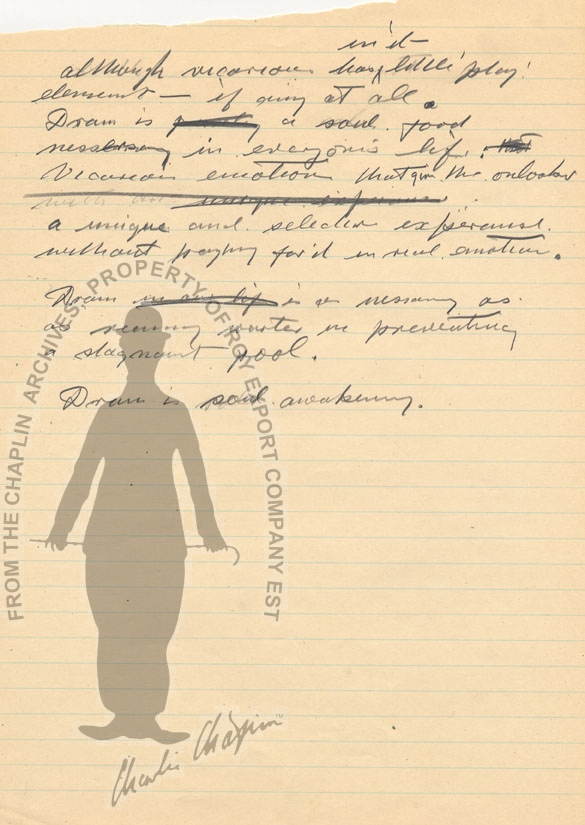 in it
although vicarious has little play
element — if any at all.
Dram is a soul food
nessessary in everyone's life.
Vicarous emotion that give the onlooker
a unique and selective experience.
without paying for it in real emotion.
Dram is as nessary as
as running water in preventing
a stagnant pool.
Dram is soul awakening.
FROM THE CHAPLIN ARCHIVES, PROPERTY OF ROY EXPORT COMPANY EST
Charlie Chaplin